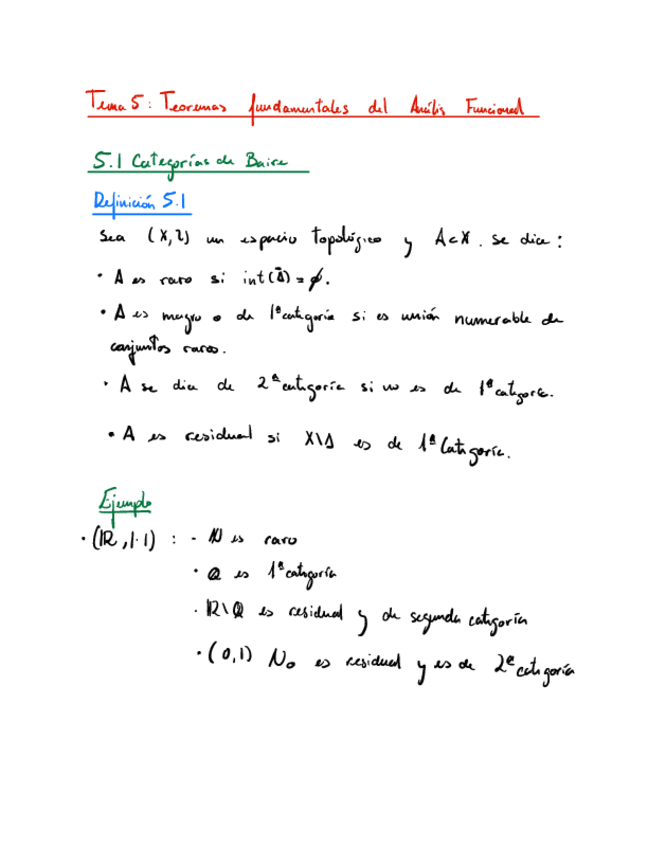 Tema 5: Teoremas fundamentales del Análisis Funcional
5.1 Categorías de Baire
Definición 5.1
Sea (X,τ) un espacio topológico y A⊂X. Se dice:
· A es raro si int(Ā) = ∅.
· A es magro o de 1ª categoría si es unión numerable de
conjuntos raros.
· A se dice de 2ª categoría si no es de 1ª categoría.
· A es residual si X\A es de 1ª Categoría.
Ejemplo
· (ℝ, |·|) : - ℕ es raro
· ℚ es 1ª categoría
· ℝ\ℚ es residual y de segunda categoría
· (0,1) No es residual y es de 2ª categoría